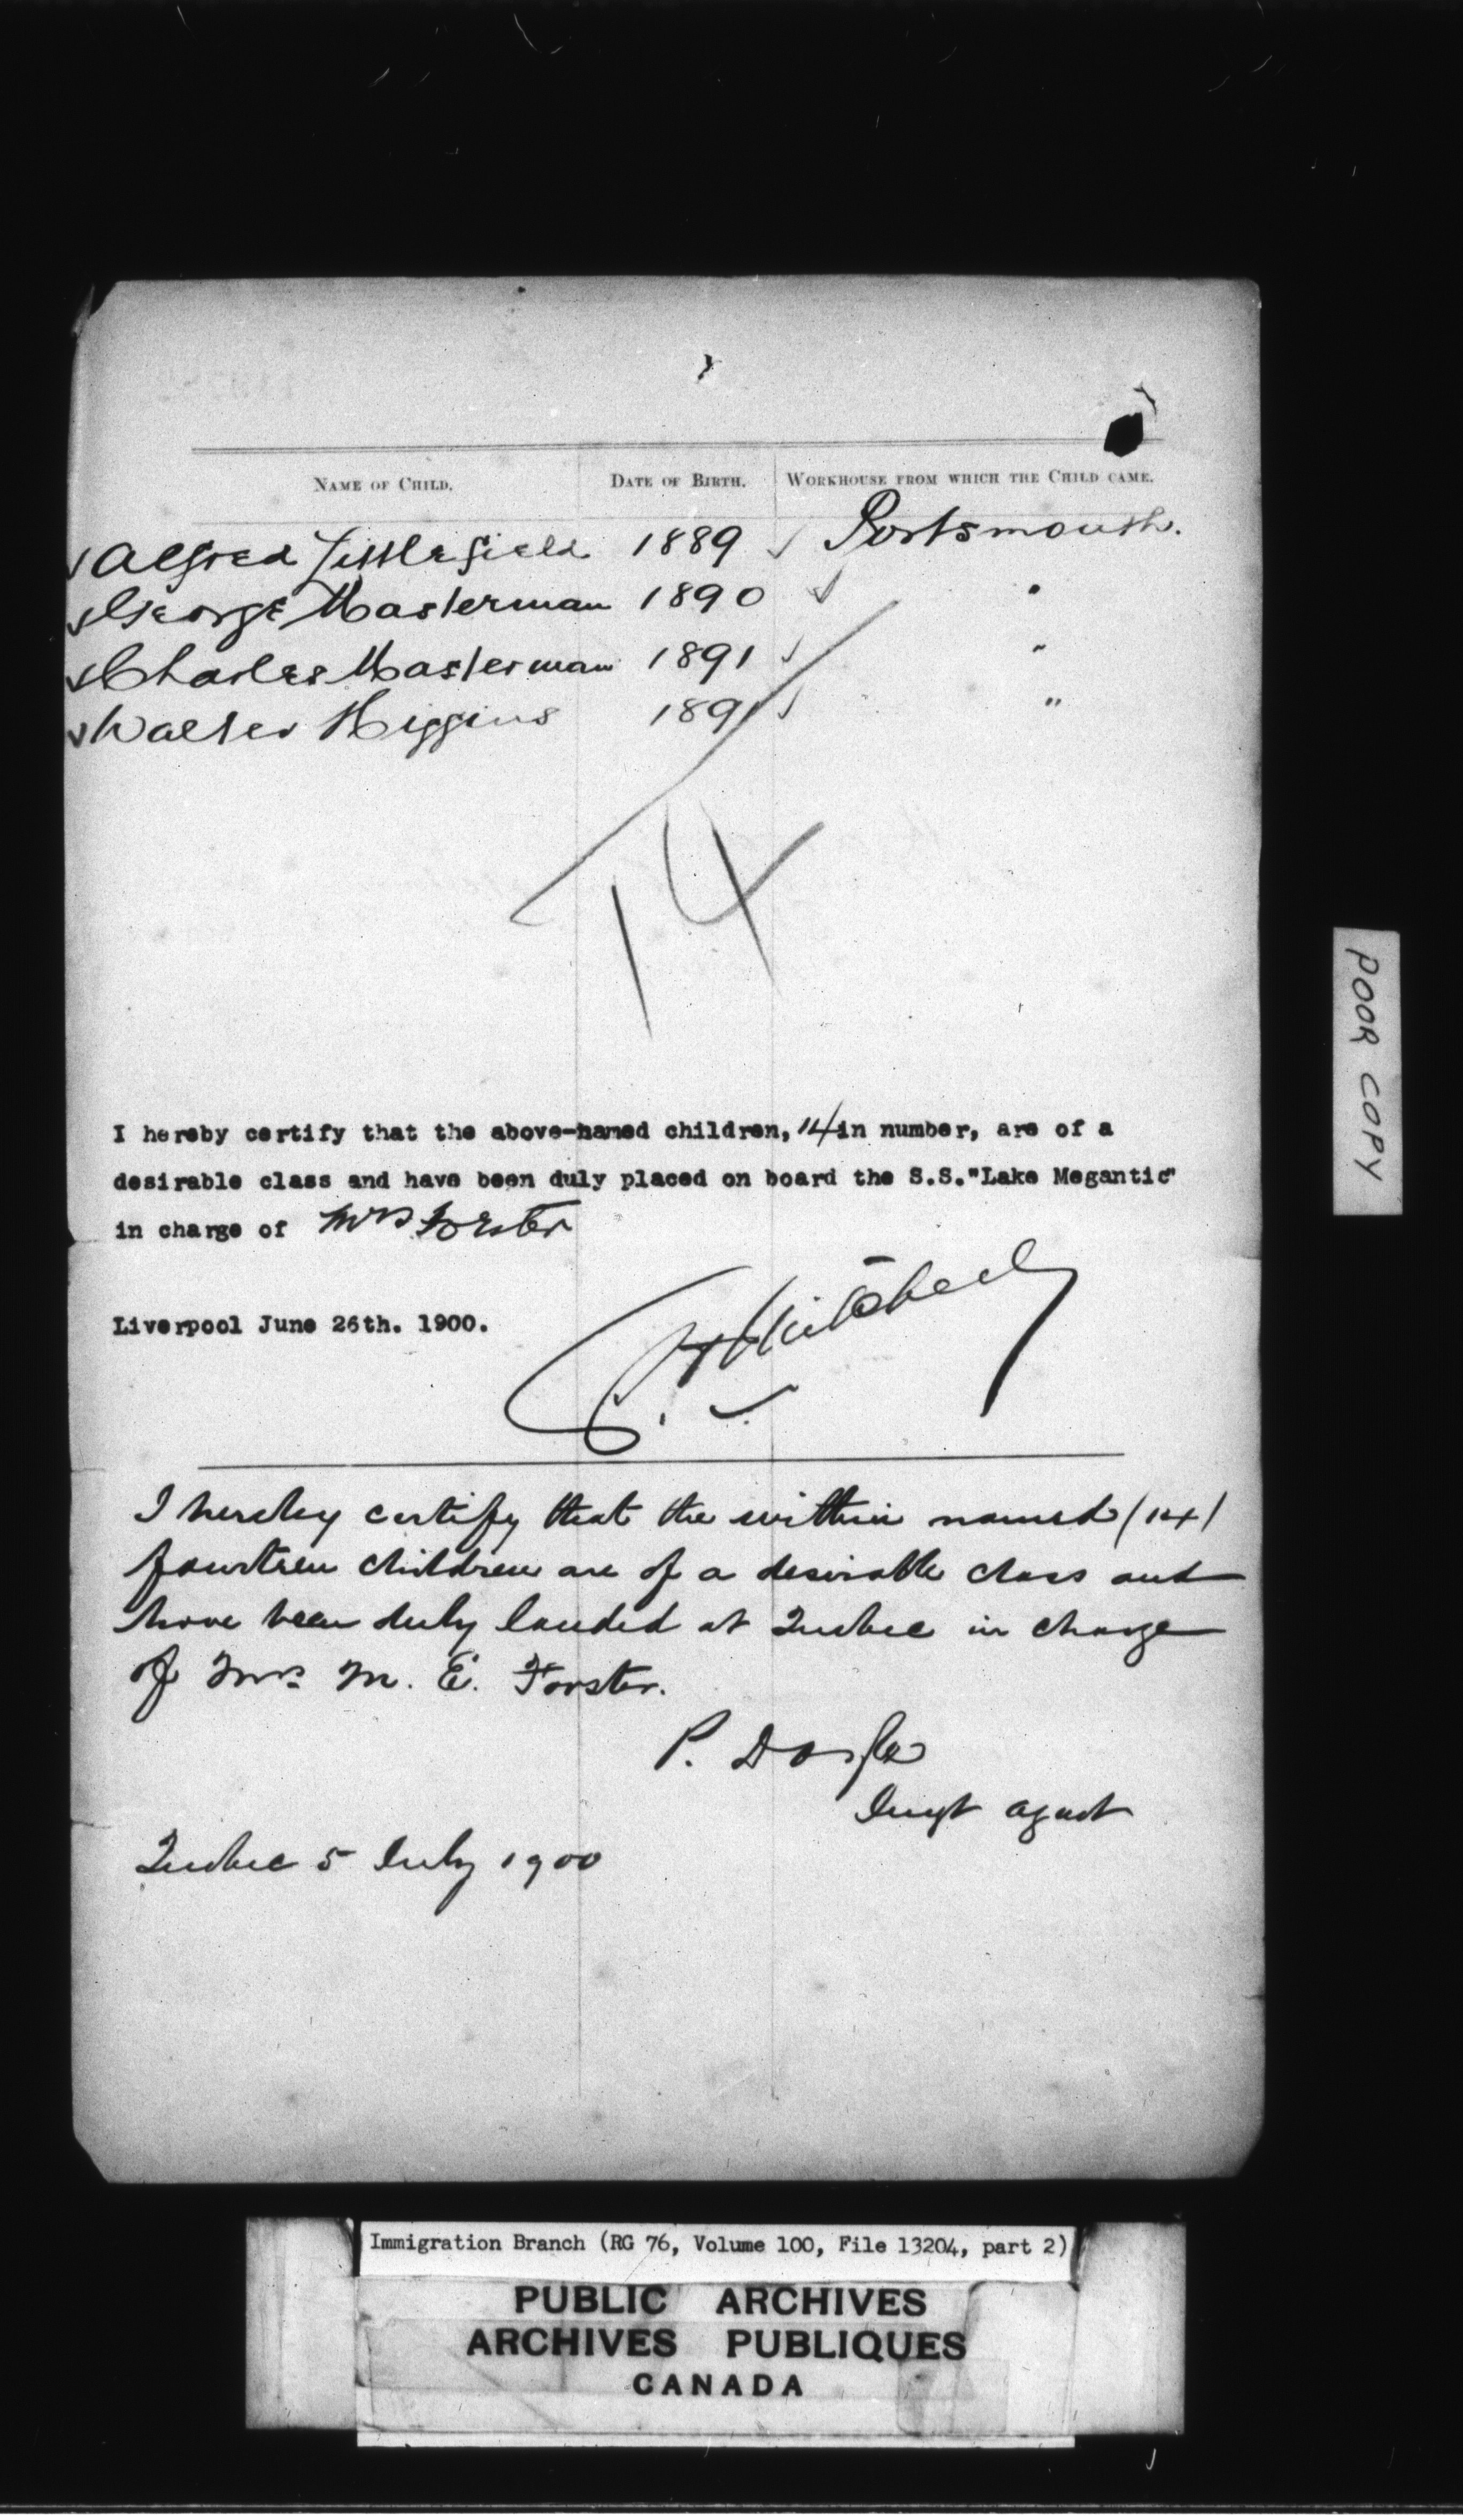 NAME OF CHILD. DATE OF BIRTH. WORKHOUSE FROM WHICH THE CHILD CAME.
Alfred Littlefield 1889 Portsmouth.
George Masterman 1890 "
Charles Masterman 1891 "
Walter Higgins 1891 "
14
I hereby certify that the above-named children, 14 in number, are of a
desirable class and have been duly placed on board the S.S."Lake Megantic"
in charge of Mrs Forster
Liverpool June 26th. 1900.
I hereby certify that the within named (14)
fourteen children are of a desirable class and
have been duly landed at Quebec in charge
of Mrs. M. E. Forster.
P. Doyle
Immgt agent
Quebec 5 July 1900
POOR COPY
Immigration Branch (RG 76, Volume 100, File 13204, part 2)
PUBLIC ARCHIVES
ARCHIVES PUBLIQUES
CANADA